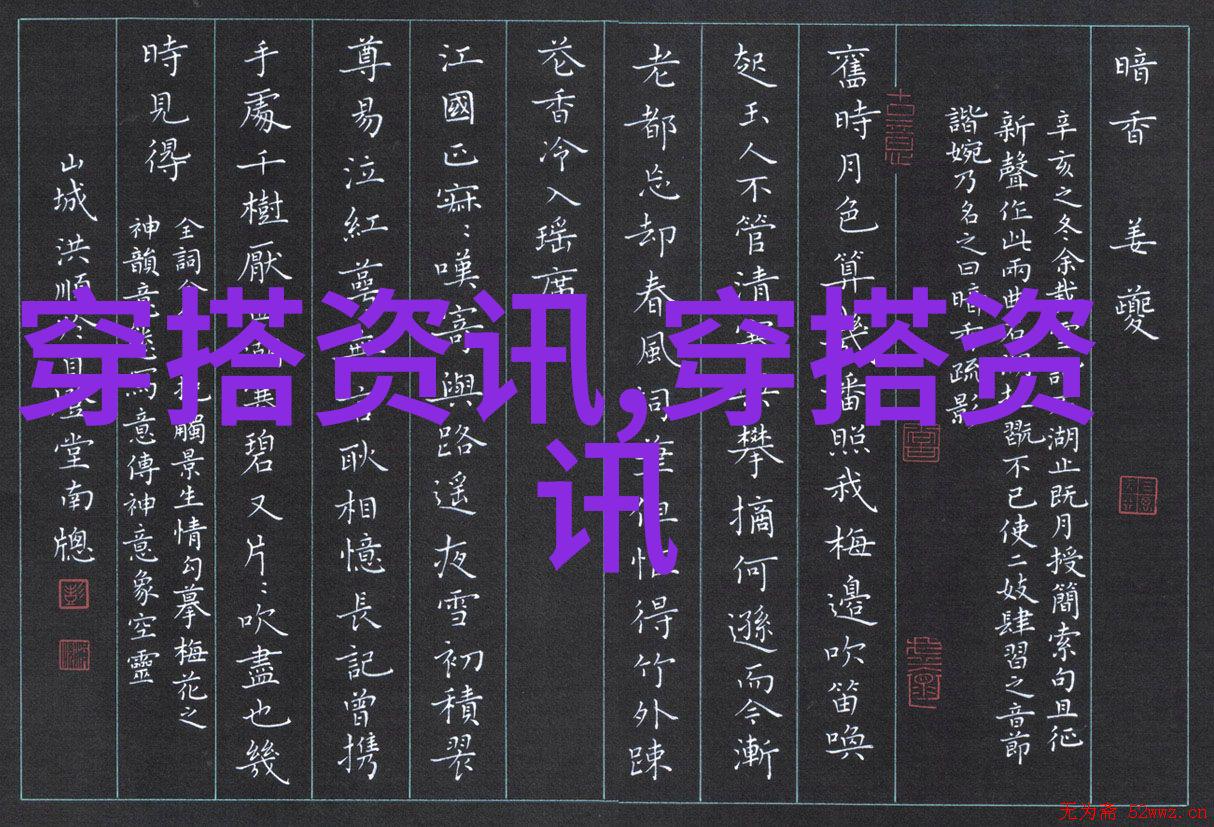 暗香 姜夔
辛亥之冬余載雪詣石湖止既月授簡索句且征
新聲作此兩曲石湖把翫不已使二妓肆習之音節
諧婉乃名之曰暗香疏影
古意
舊時月色算幾番照我梅邊吹笛喚
起玉人不管清寒與攀摘何遜而今漸
老都忘却春風詞筆但怪得竹外疎
花香冷入瑤席
江國正寂:嘆寄與路遙夜雪初積翠
尊易泣紅萼無言耿相憶長記曾携
手處千樹壓西湖寒碧又片:吹盡也幾
時見得
全詞 把觸景生情勾摹梅花之
神韻意態寫意傳神意象空靈
山城洪順 登堂南牕
穿搭资讯,穿搭资
讯
无为斋 52wwz.cn